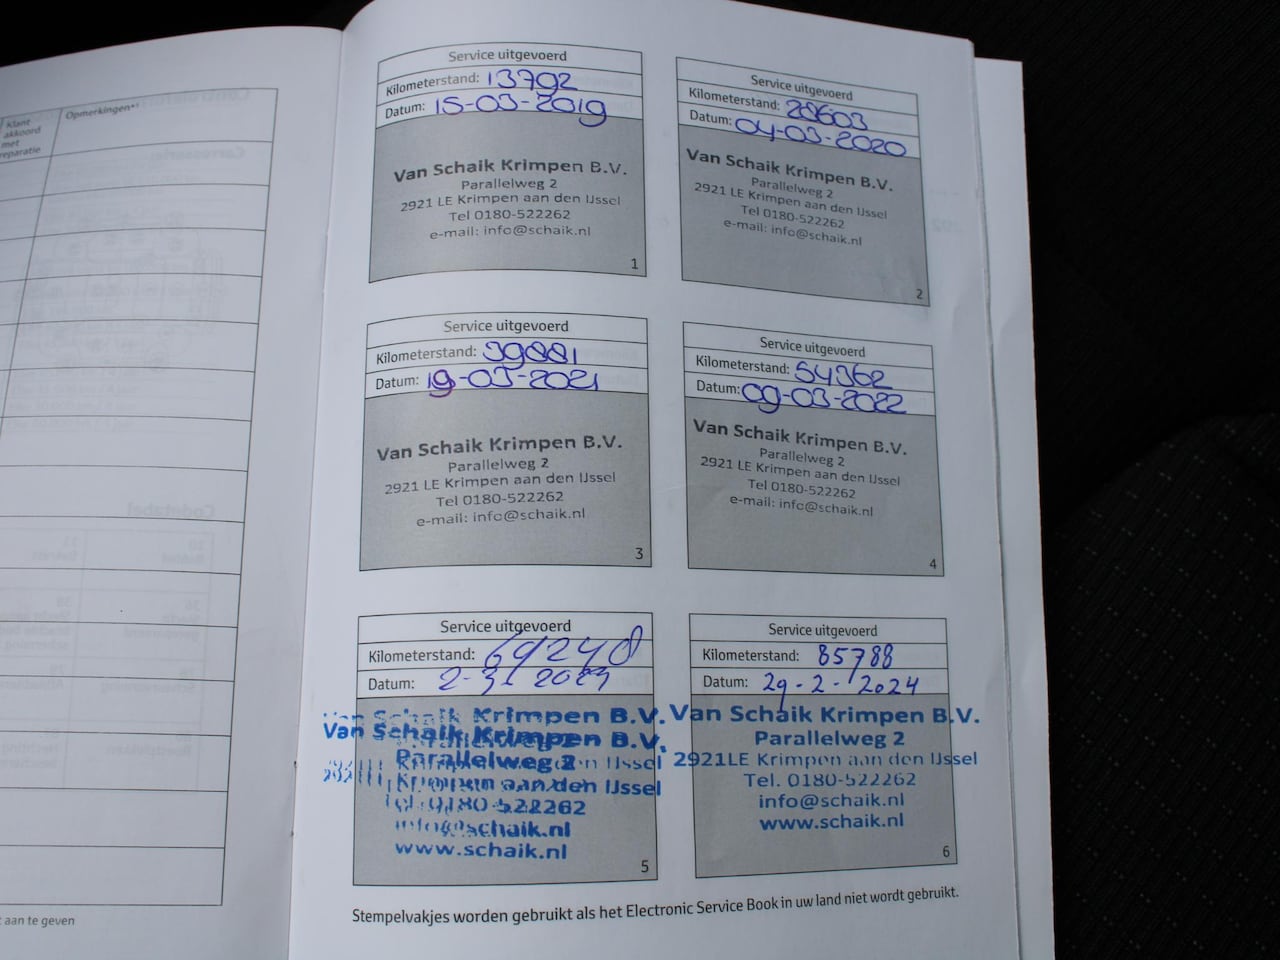 Klant
akkoord
met
reparatie
Opmerkingen*¹
t aan te geven
Service uitgevoerd
Kilometerstand: 13792
Datum: 15-03-2019
Van Schaik Krimpen B.V.
Parallelweg 2
2921 LE Krimpen aan den IJssel
Tel 0180-522262
e-mail: info@schaik.nl
1
Service uitgevoerd
Kilometerstand: 28603
Datum: 04-03-2020
Van Schaik Krimpen B.V.
Parallelweg 2
2921 LE Krimpen aan den IJssel
Tel 0180-522262
e-mail: info@schaik.nl
2
Service uitgevoerd
Kilometerstand: 39881
Datum: 19-03-2021
Van Schaik Krimpen B.V.
Parallelweg 2
2921 LE Krimpen aan den IJssel
Tel 0180-522262
e-mail: info@schaik.nl
3
Service uitgevoerd
Kilometerstand: 54362
Datum: 09-03-2022
Van Schaik Krimpen B.V.
Parallelweg 2
2921 LE Krimpen aan den IJssel
Tel 0180-522262
e-mail: info@schaik.nl
4
Service uitgevoerd
Kilometerstand: 69240
Datum: 2-3-2023
Van Schaik Krimpen B.V.
Van Schaik Krimpen B.V.
Parallelweg 2
Krimpen aan den IJssel
Tel. 0180-522262
info@schaik.nl
www.schaik.nl
5
Service uitgevoerd
Kilometerstand: 85788
Datum: 29-2-2024
Van Schaik Krimpen B.V.
Parallelweg 2
2921LE Krimpen aan den IJssel
Tel. 0180-522262
info@schaik.nl
www.schaik.nl
6
Stempelvakjes worden gebruikt als het Electronic Service Book in uw land niet wordt gebruikt.